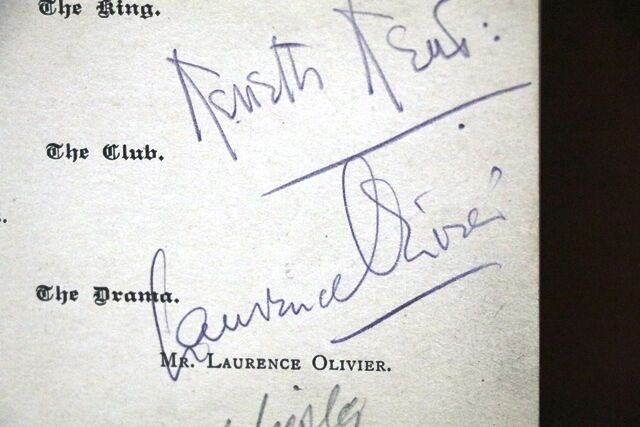 The King.
Kenneth Kent.
The Club.
Laurence Olivier
The Drama.
Mr. Laurence Olivier.